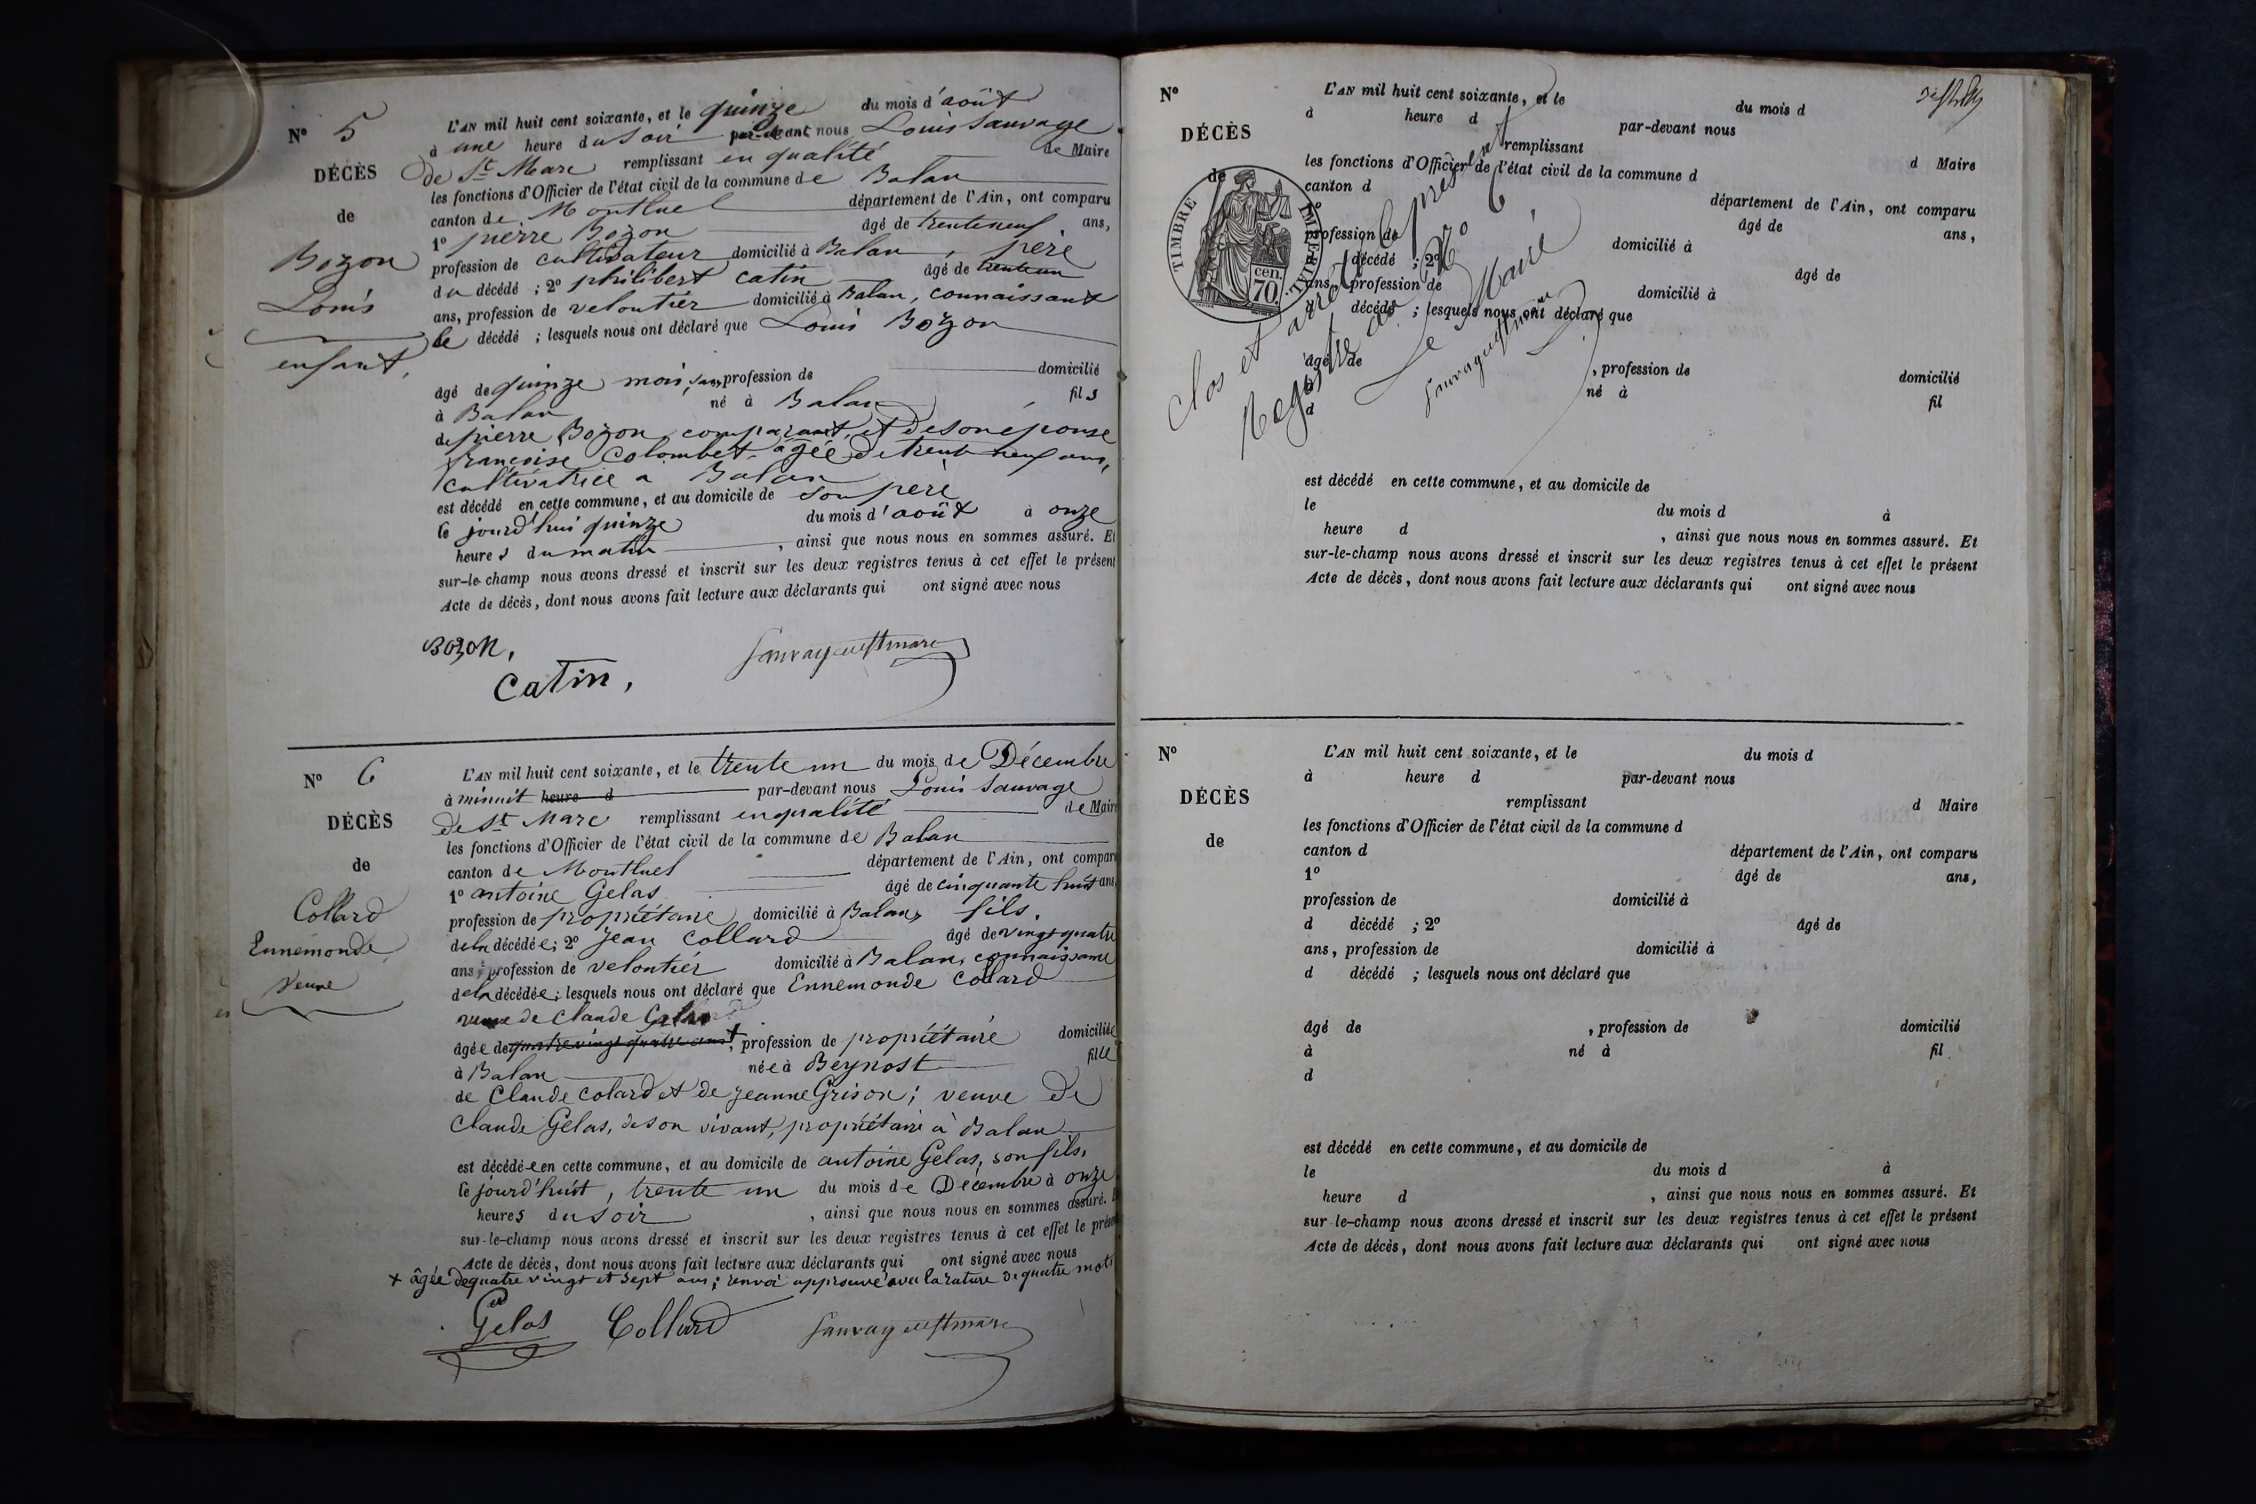 N° 5
DÉCÈS
de
Bozon
Louis
enfant,
L'AN mil huit cent soixante, et le quinze du mois d'août
à une heure du soir par-devant nous Louis Sauvage
de St Marc remplissant en qualité de Maire
les fonctions d'Officier de l'état civil de la commune de Balan
canton de Montluel département de l'Ain, ont comparu
1° pierre Bozon âgé de trente neuf ans,
profession de cultivateur domicilié à Balan, père
du décédé ; 2° philibert catin âgé de trente un
ans, profession de veloutier domicilié à Balan, connaissant
le décédé ; lesquels nous ont déclaré que Louis Bozon
âgé de quinze mois, sans profession de domicilié
à Balan né à Balan fils
de pierre Bozon, comparant, et de son épouse
françoise Colombet, âgée de trente neuf ans,
cultivatrice a Balan
est décédé en cette commune, et au domicile de son père
le jourd'hui quinze du mois d'août à onze
heures du matin, ainsi que nous nous en sommes assuré. Et
sur-le-champ nous avons dressé et inscrit sur les deux registres tenus à cet effet le présent
Acte de décès, dont nous avons fait lecture aux déclarants qui ont signé avec nous
Bozon,
Catin,
Sauvage de St marc
N° 6
DÉCÈS
de
Collard
Ennemonde
Veuve
L'AN mil huit cent soixante, et le trente un du mois de Décembre
à minuit heure d par-devant nous Louis Sauvage
de St Marc remplissant en qualité de Maire
les fonctions d'Officier de l'état civil de la commune de Balan
canton de Montluel département de l'Ain, ont compar
1° antoine Gelas âgé de cinquante huit ans
profession de propriétaire domicilié à Balan, fils.
de la décédée ; 2° Jean Collard âgé de vingt quatre
ans, profession de veloutier domicilié à Balan, connaissant
de la décédée ; lesquels nous ont déclaré que Ennemonde Collard
veuve de Claude Gelas
âgée de quatre vingt quatre ans +, profession de propriétaire domiciliée
à Balan née à Beynost fille
de Claude Colard et de Jeanne Grison ; veuve de
Claude Gelas, de son vivant, propriétaire à Balan
est décédée en cette commune, et au domicile de antoine Gelas, son fils,
le jourd'huit, trente un du mois de Décembre à onze
heures du soir, ainsi que nous nous en sommes assuré. E
sur-le-champ nous avons dressé et inscrit sur les deux registres tenus à cet effet le prése
Acte de décès, dont nous avons fait lecture aux déclarants qui ont signé avec nous
+ âgée de quatre vingt et sept ans ; renvoi approuvé avec la rature de quatre mots
Gelas Collard Sauvage de St marc
N°
DÉCÈS
de
TIMBRE IMPERIAL
70 cen.
L'AN mil huit cent soixante, et le du mois d
à heure d par-devant nous
remplissant d Maire
les fonctions d'Officier de l'état civil de la commune d
canton d département de l'Ain, ont comparu
âgé de ans,
profession de domicilié à
décédé ; 2° âgé de
ans, profession de domicilié à
d décédé ; lesquels nous ont déclaré que
âgé de , profession de domicilié
né à fil
d
est décédé en cette commune, et au domicile de
le du mois d à
heure d , ainsi que nous nous en sommes assuré. Et
sur-le-champ nous avons dressé et inscrit sur les deux registres tenus à cet effet le présent
Acte de décès, dont nous avons fait lecture aux déclarants qui ont signé avec nous
Clos et arrêté le présent
Registre au N° 6
Le Maire
Sauvage de St marc
N°
DÉCÈS
de
L'AN mil huit cent soixante, et le du mois d
à heure d par-devant nous
remplissant d Maire
les fonctions d'Officier de l'état civil de la commune d
canton d département de l'Ain, ont comparu
1° âgé de ans,
profession de domicilié à
d décédé ; 2° âgé de
ans, profession de domicilié à
d décédé ; lesquels nous ont déclaré que
âgé de , profession de domicilié
à né à fil
d
est décédé en cette commune, et au domicile de
le du mois d à
heure d , ainsi que nous nous en sommes assuré. Et
sur-le-champ nous avons dressé et inscrit sur les deux registres tenus à cet effet le présent
Acte de décès, dont nous avons fait lecture aux déclarants qui ont signé avec nous